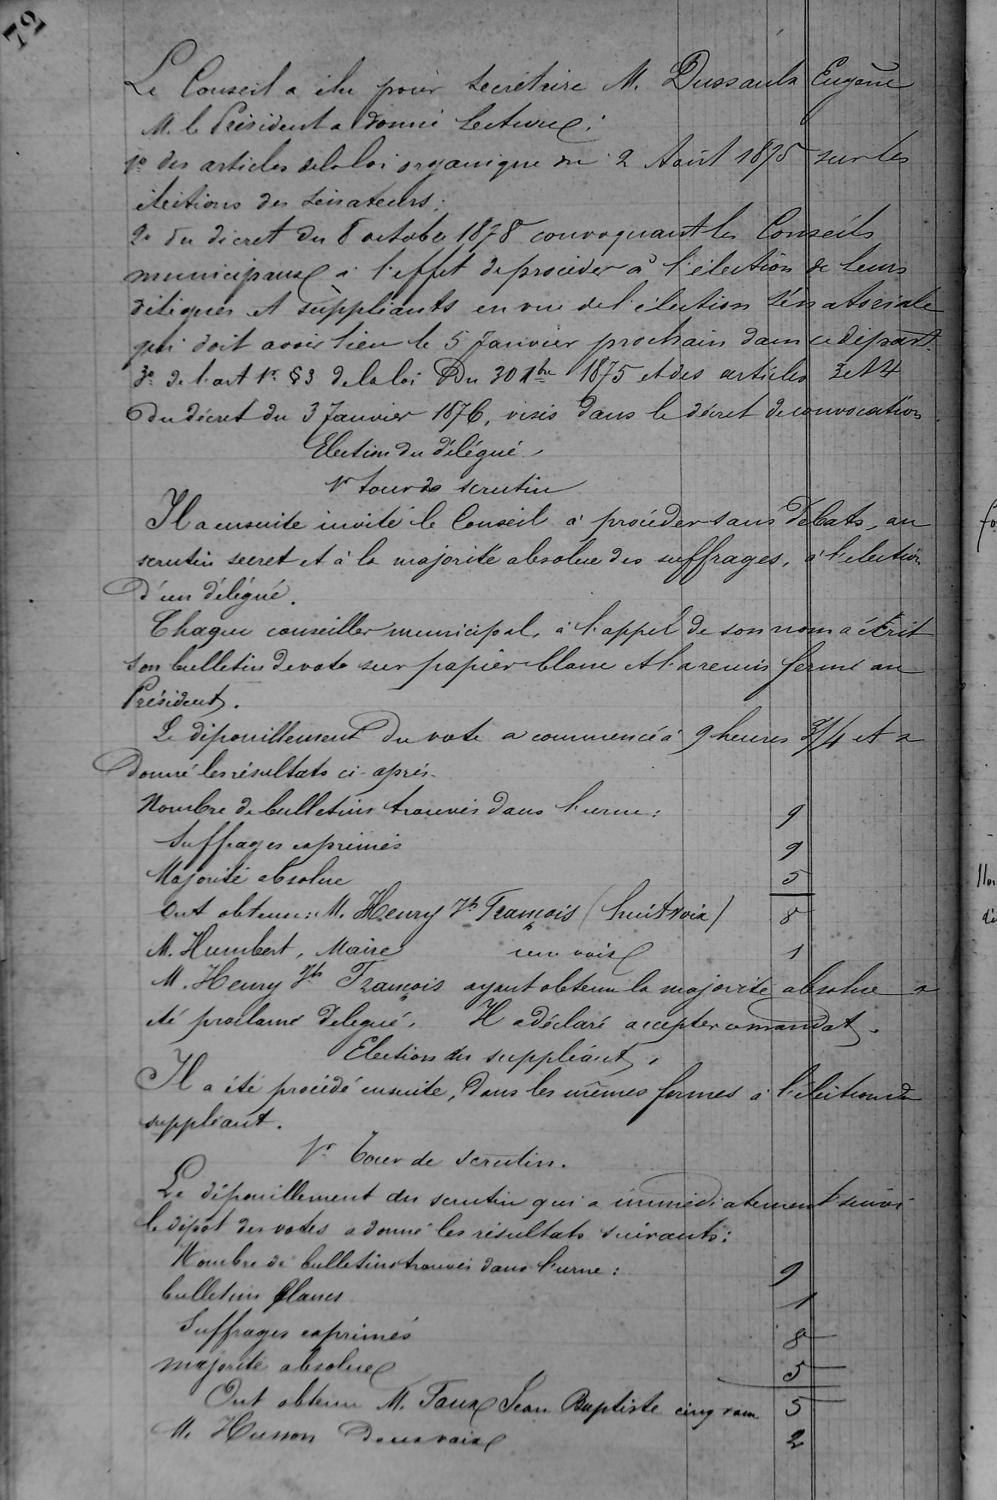 72
Le Conseil a élu pour secrétaire M. Dussaulx Eugène
M. le Président a donné lecture :
1° des articles de la loi organique du 2 Août 1875 sur les
élections des sénateurs;
2° du décret du 8 octobre 1878 convoquant les Conseils
municipaux à l'effet de procéder à l'élection de leurs
délégués et suppléants en vue de l'élection sénatoriale
qui doit avoir lieu le 5 Janvier prochain dans ce départ.
3° de l'art 1er § 3 de la loi du 30 xbre 1875 et des articles 3 et 4
du décret du 3 Janvier 1876, visés dans le décret de convocation
Election du délégué
1r tour de scrutin
Il a ensuite invité le Conseil à procéder sans débats, au
scrutin secret et à la majorité absolue des suffrages, à l'élection
d'un délégué.
Chaque conseiller municipal, à l'appel de son nom a écrit
son bulletin de vote sur papier blanc et l'a remis fermé au
Président.
Le dépouillement du vote a commencé à 9 heures 3/4 et a
donné les résultats ci-après
Nombre de bulletins trouvés dans l'urne : 9
Suffrages exprimés 9
Majorité absolue 5
Ont obtenu : M. Henry Jh François (huit voix) 8
M. Humbert, Maire une voix 1
M. Henry Jh François ayant obtenu la majorité absolue a
été proclamé délégué. Il a déclaré accepter ce mandat.
Election du suppléant.
Il a été procédé ensuite, dans les mêmes formes à l'élection du
suppléant.
1r Tour de scrutin.
Le dépouillement du scrutin qui a immédiatement suivi
le dépôt des votes a donné les résultats suivants :
Nombre de bulletins trouvés dans l'urne : 9
bulletins blancs 1
Suffrages exprimés 8
majorité absolue 5
Ont obtenu M. Jean Baptiste cinq voix 5
M. Husson deux voix 2